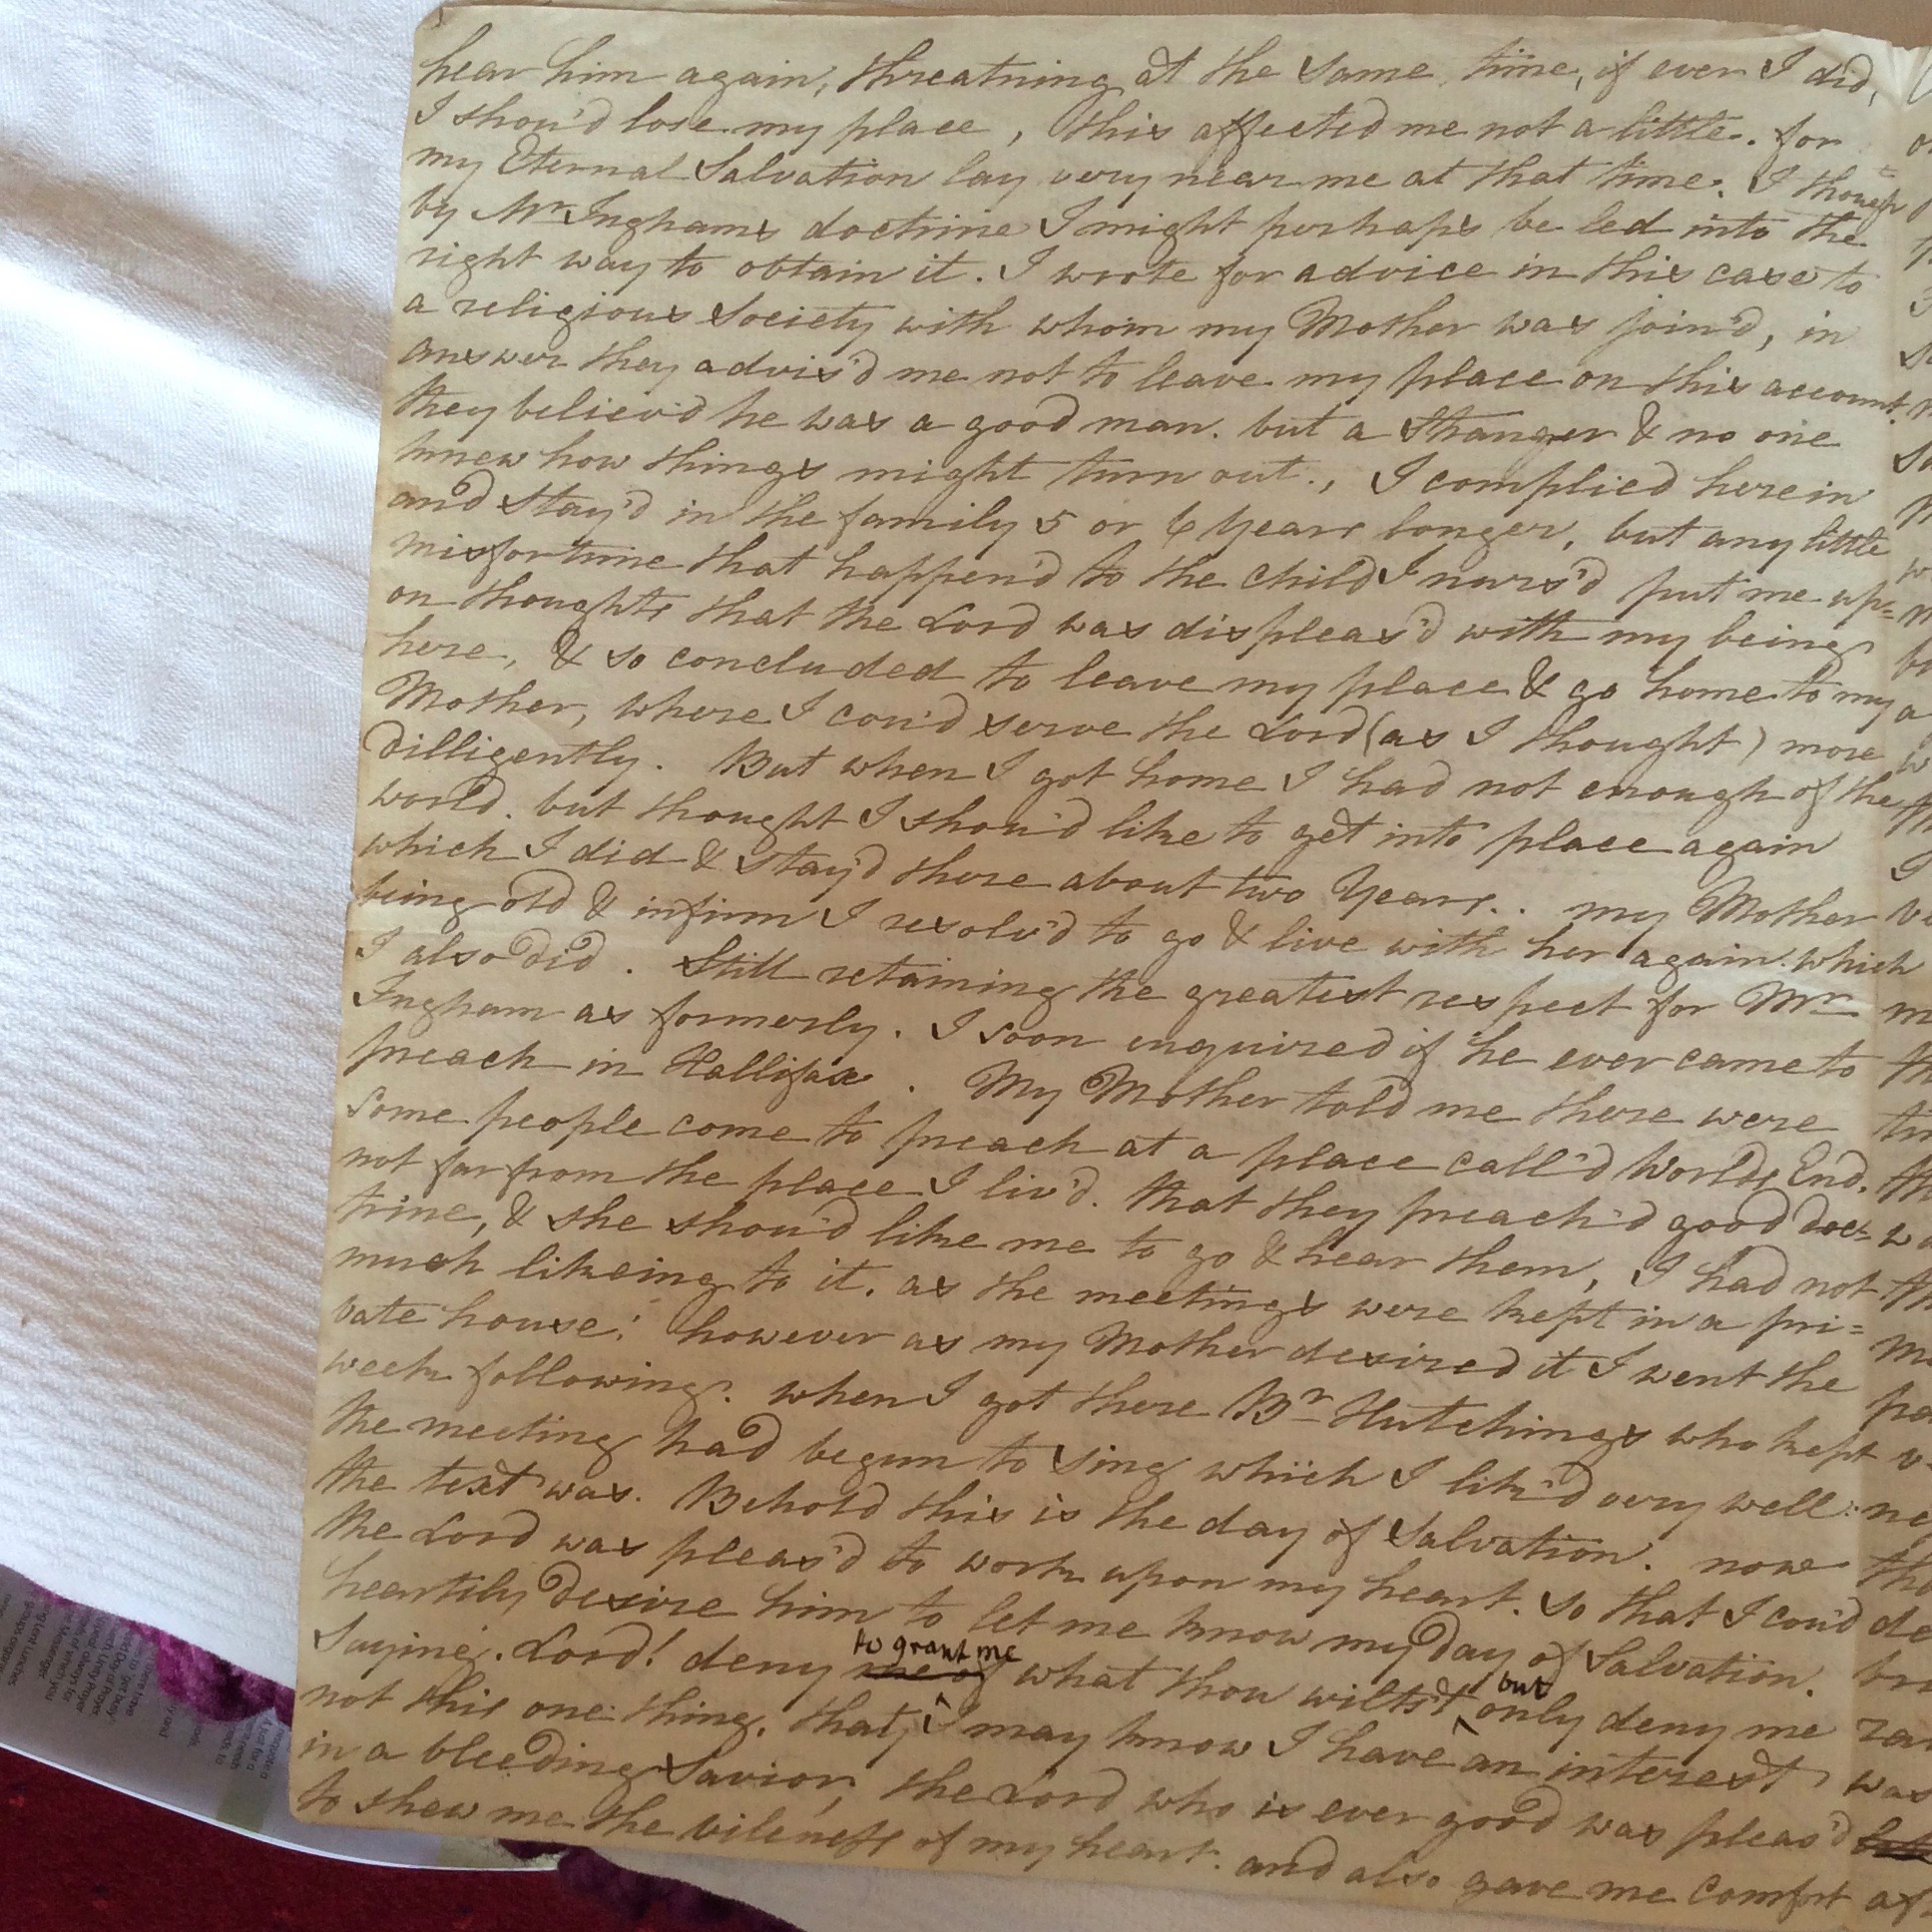 hear him again, threatning at the same time, if ever I did,
I shou'd lose my place, this affected me not a little. for
my Eternal Salvation lay very near me at that time. I though
by Mr Inghams doctrine I might perhaps be led into the
right way to obtain it. I wrote for advice in this case to
a religious Society with whom my Mother was join'd, in
answer they advis'd me not to leave my place on this account.
they believ'd he was a good man. but a Stranger & no one
knew how things might turn out., I complied herein
and stay'd in the family 5 or 6 Years longer, but any little
misfortune that happen'd to the child I nurs'd put me up=
on thoughts that the Lord was displeas'd with my being
here, & so concluded to leave my place & go home to my
Mother, where I cou'd serve the Lord (as I thought) more
dilligently. But when I got home I had not enough of the
world. but thought I shou'd like to get into place again
which I did & stay'd there about two Years.. my Mother
being old & infirm I resolv'd to go & live with her again. which
I also did. Still retaining the greatest respect for Mr
Ingham as formerly. I soon enquired if he ever came to
preach in Hallifax. My Mother told me there were
some people come to preach at a place call'd Worlds End.
not far from the place I liv'd. that they preach'd good doc=
trine, & she shou'd like me to go & hear them, I had not
much likeing to it. as the meetings were kept in a pri=
vate house: however as my Mother desired it I went the
week following. when I got there Br Hutchings who kept
the meeting had begun to sing which I lik'd very well:
the text was. Behold this is the day of Salvation. now
the Lord was pleas'd to work upon my heart. so that I cou'd
heartily desire him to let me know my day of Salvation.
Saying. Lord! deny to grant me me of what thou wiltst but only deny me
not this one thing. that I may know I have an interest
in a bleeding Savior, the Lord who is ever good was pleas'd
to shew me the vileness of my heart. and also gave me comfort